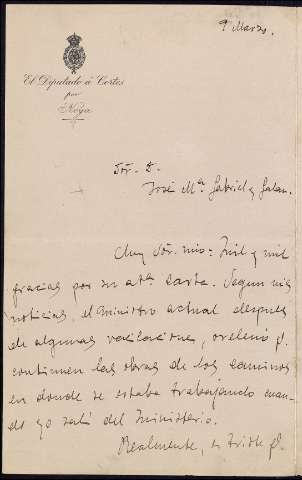 9 Marzo.
El Diputado á Cortes
por
Noya
Sor. D.
José Mª Gabriel y Galan.
Muy Sor. mio: Mil y mil
gracias por su atta carta. Segun mis
noticias, el Ministro actual despues
de algunas vacilaciones, ordenó q.
continuen las obras de los caminos
en donde se estaba trabajando cuan-
do yo salí del Ministerio.
Realmente, es triste q.